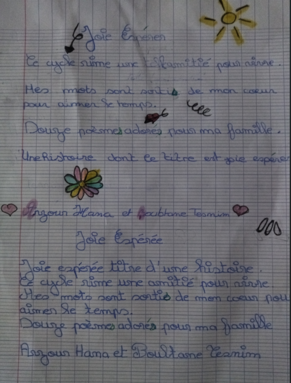 Joie Espérée
Ce cycle rime une amitié pour vivre.
Mes mots sont sortis de mon cœur
pour aimer le temps.
Douze poèmes adorés pour ma famille.
Une histoire dont le titre est joie espérée
Anjour Hana et Boultame Tesnim
Joie Espérée
Joie espérée titre d'une histoire.
Ce cycle rime une amitié pour vivre
Mes mots sont sortis de mon cœur pour
aimer le temps.
Douze poèmes adorés pour ma famille
Anjour Hana et Boultame Tesnim